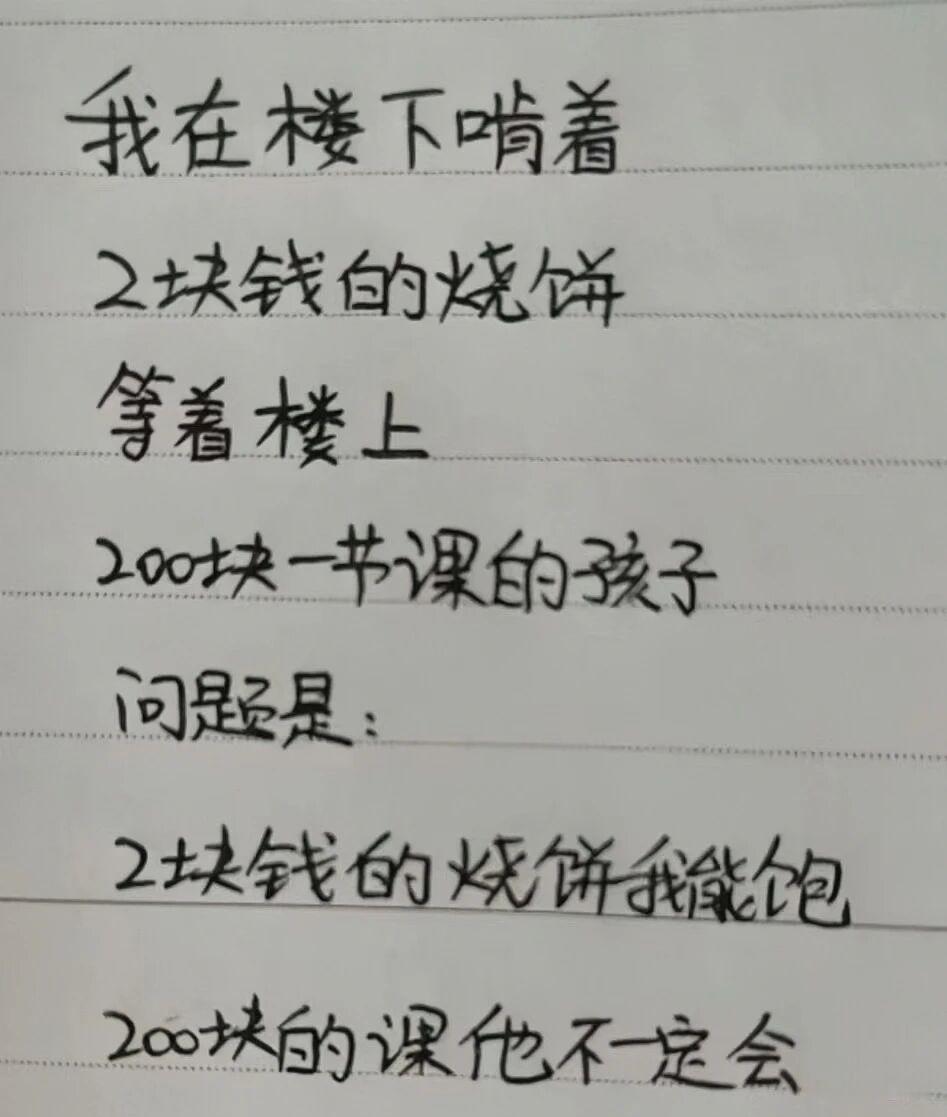 我在楼下啃着
2块钱的烧饼
等着楼上
200块一节课的孩子
问题是:
2块钱的烧饼我能饱
200块的课他不一定会